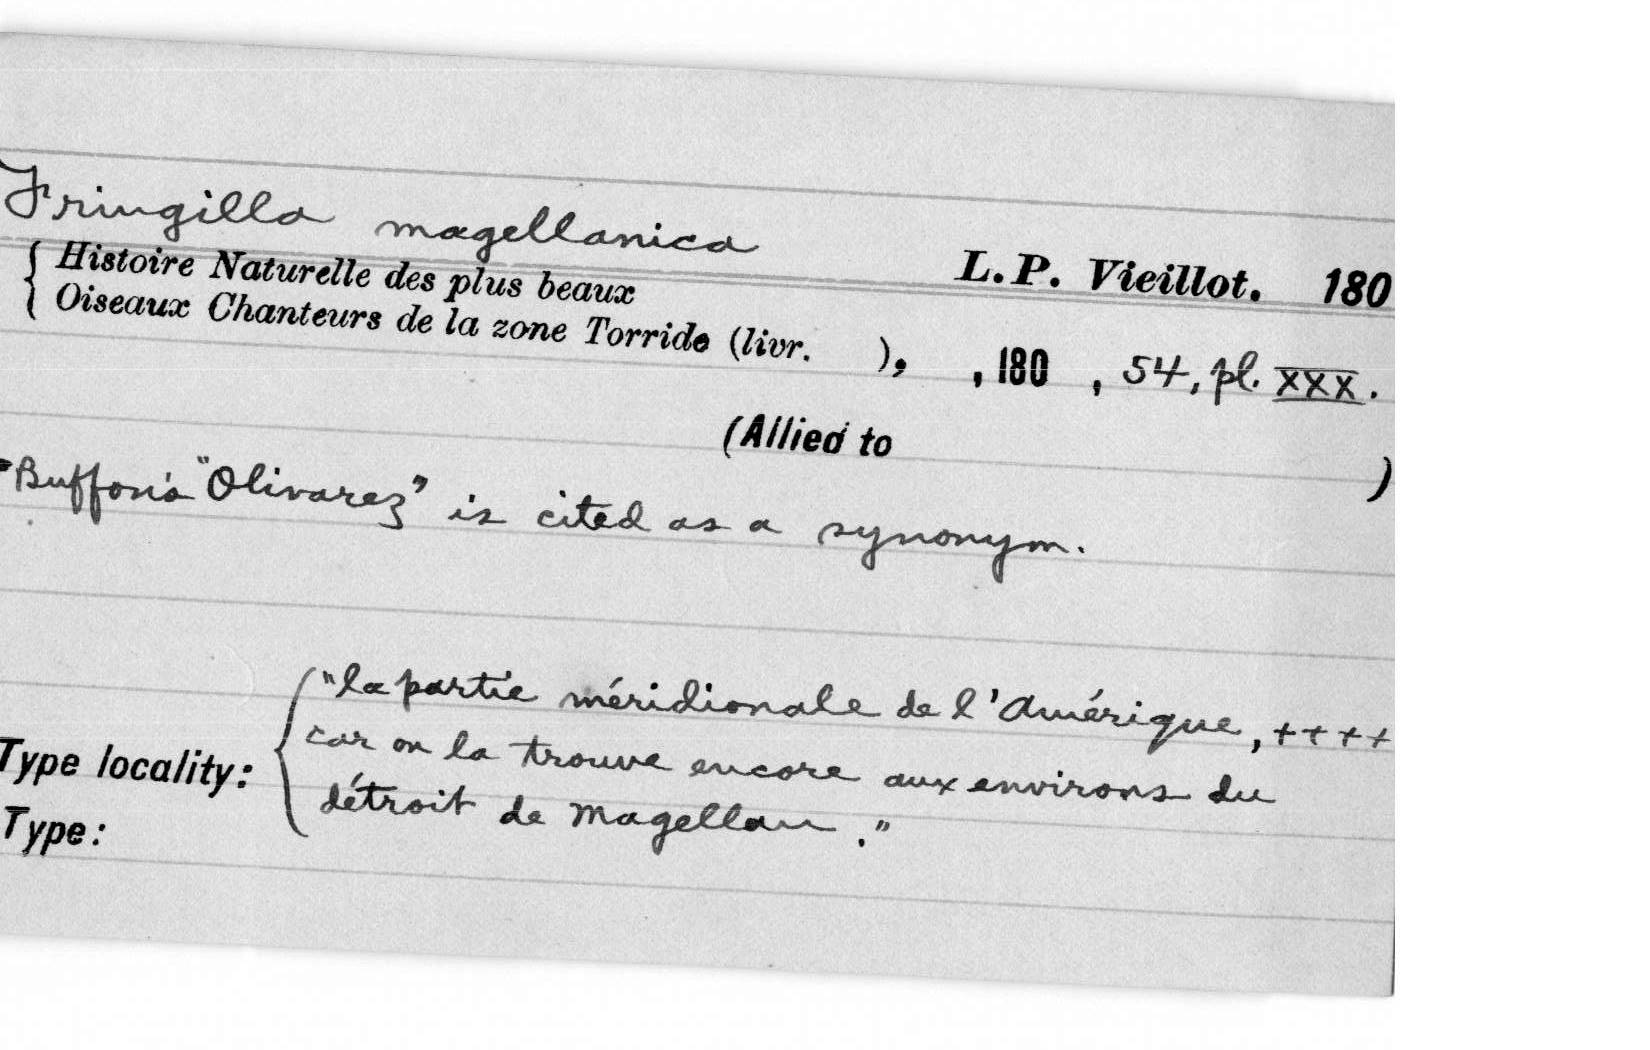 Fringilla magellanica
L. P. Vieillot. 180
{ Histoire Naturelle des plus beaux
Oiseaux Chanteurs de la zone Torride (livr. ), , 180 , 54, pl. XXX.
(Allied to )
Buffon's "Olivarez" is cited as a synonym.
Type locality: { "la partie méridionale de l'Amérique, ++++
car on la trouve encore aux environs du
détroit de Magellan."
Type: